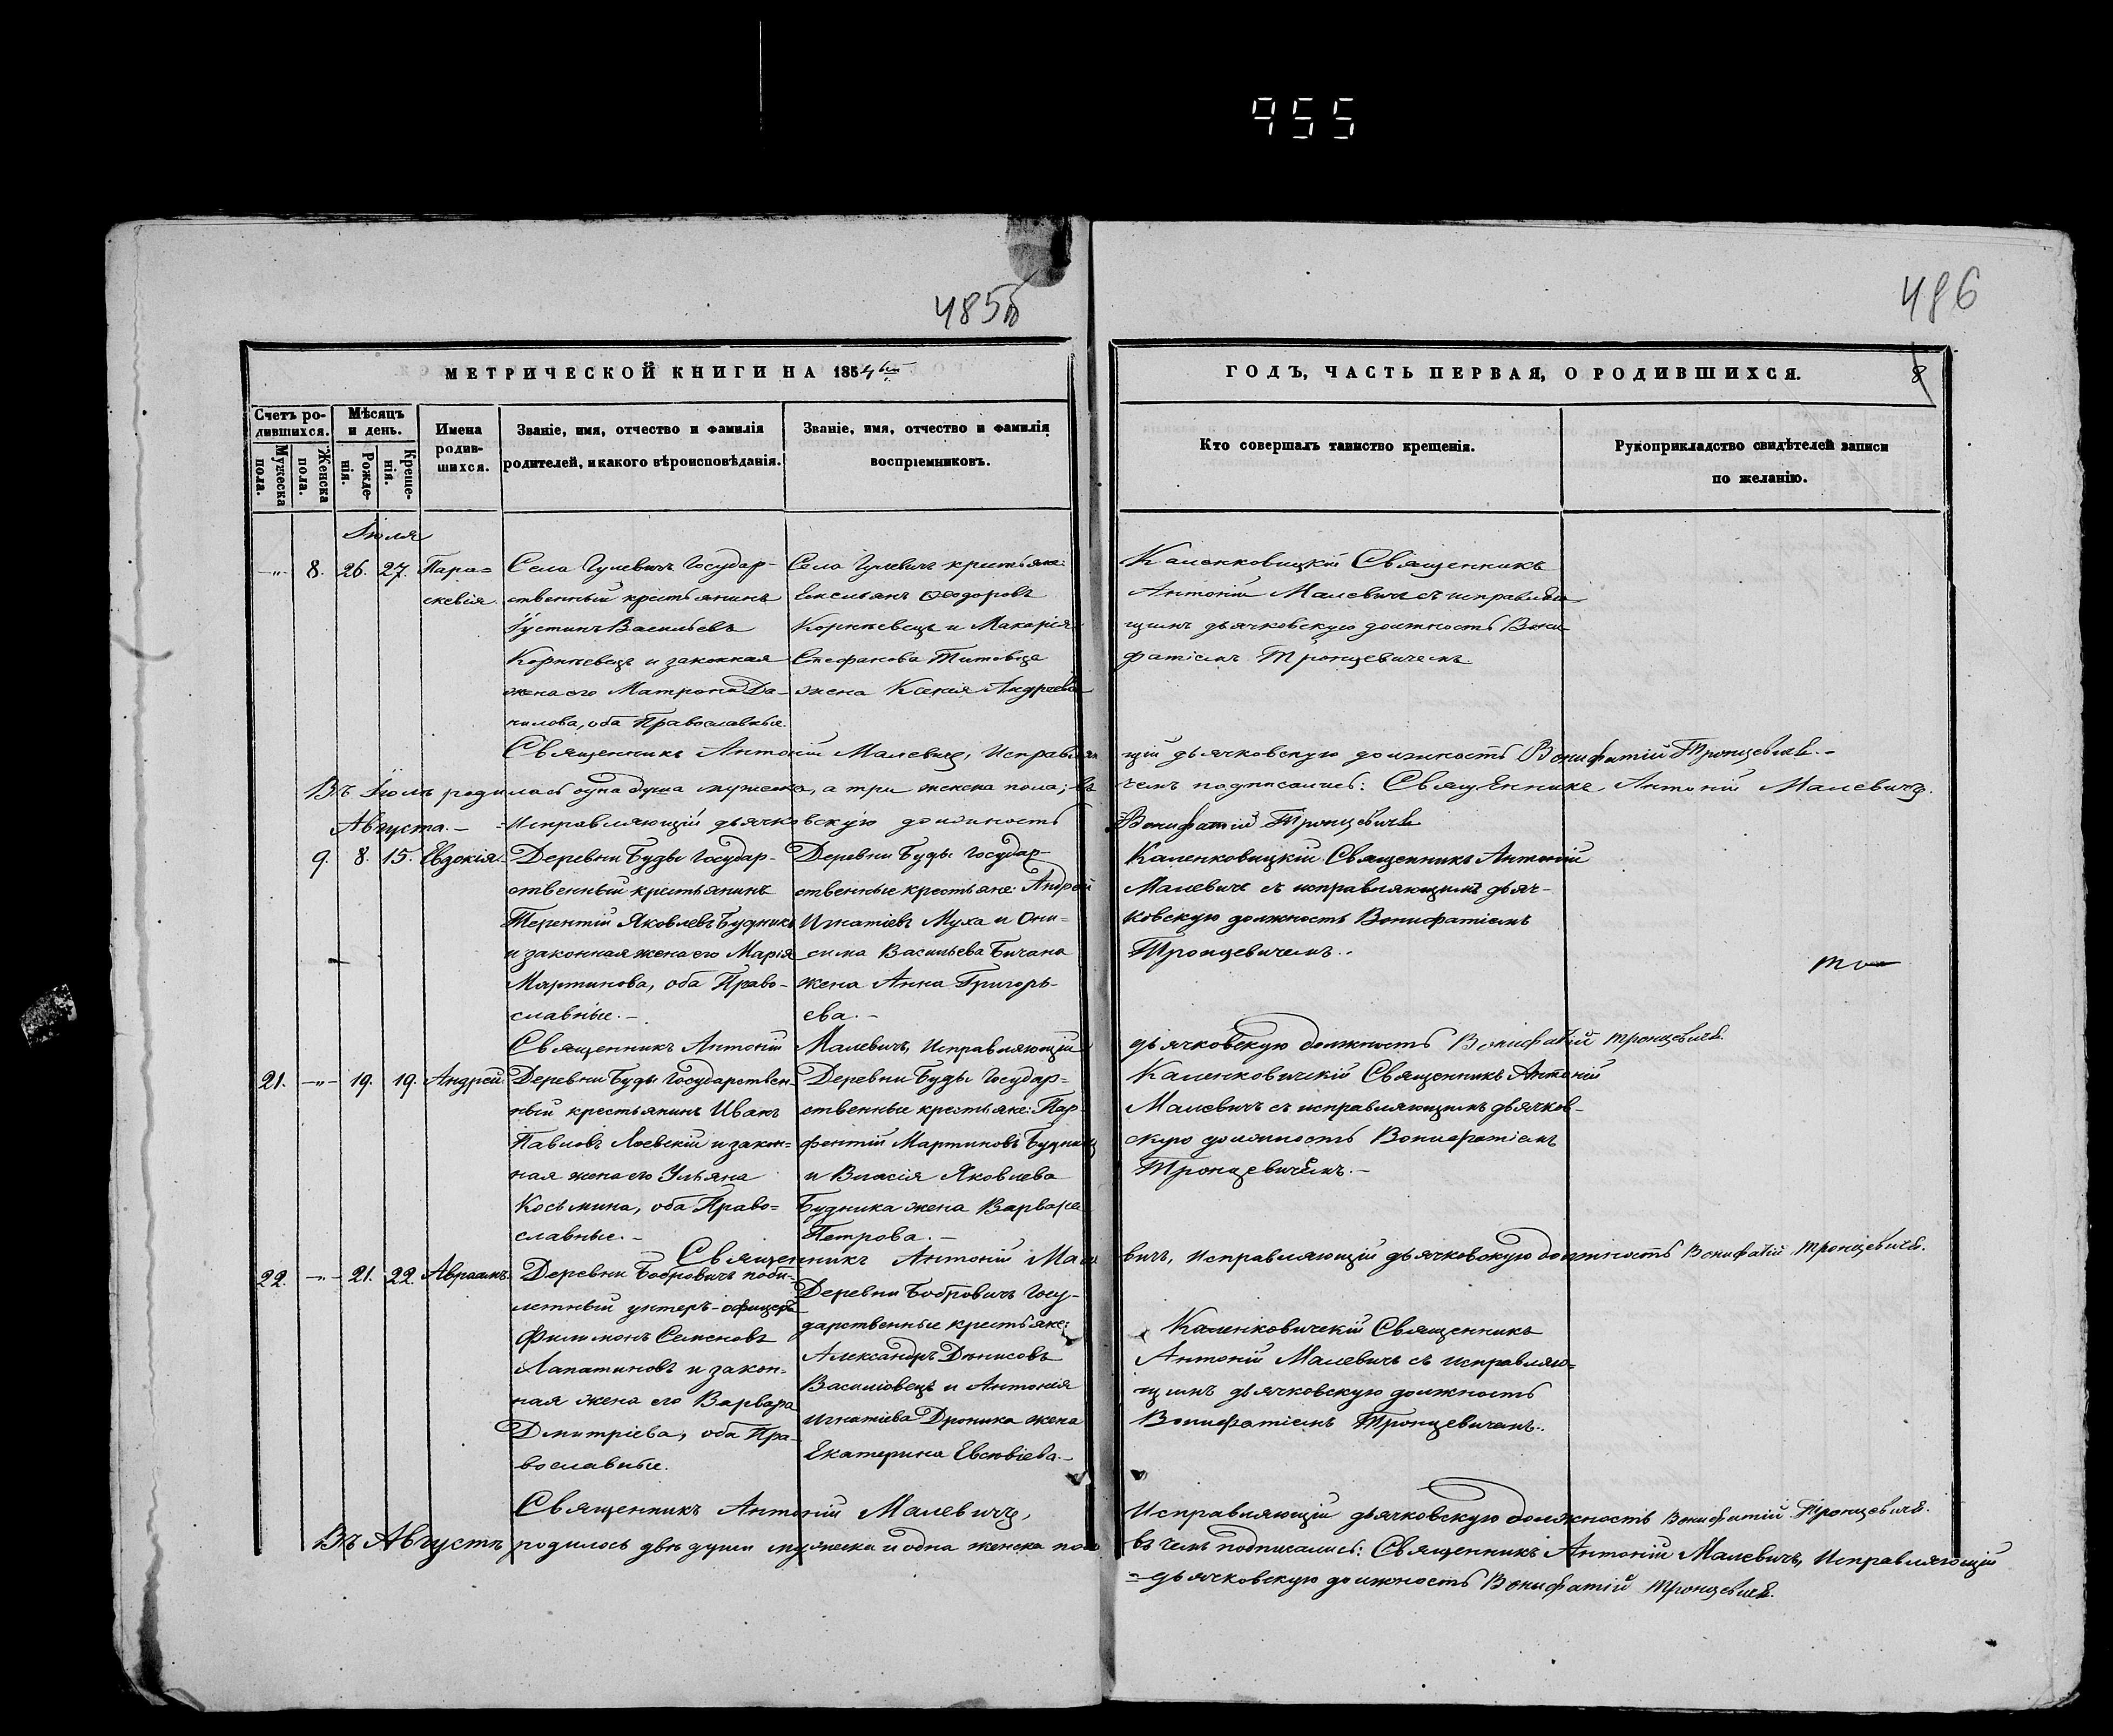 955
485б
486
МЕТРИЧЕСКОЙ КНИГИ НА 1854
ГОДЪ, ЧАСТЬ ПЕРВАЯ, О РОДИВШИХСЯ.
8
Счетъ ро-
дившихся.
Мужеска
пола.
Женска
пола.
Мѣсяцъ
и день.
Рожде-
нія.
Креще-
нія.
Имена
родив-
шихся.
Званіе, имя, отчество и фамилія
родителей, и какого вѣроисповѣданія.
Званіе, имя, отчество и фамилія
воспріемниковъ.
Кто совершалъ таинство крещенія.
Рукоприкладство свидѣтелей записи
по желанію.
Іюля
-"- 8. 26. 27. Пара=
скевія.
Села Гулевичъ Государ-
ственный крестьянинъ
Іустинъ Васильевъ
Корнѣевецъ и законная
жена его Матрона Да-
нилова, оба Православные.
Села Гулевичъ крестьяне:
Емельянъ Ѳеодоровъ
Корнѣевецъ и Макарія
Стефанова Титовца
жена Ксенія Андреева
Каленковицкій Священникъ
Антоній Малевичъ съ исправляю-
щимъ дьячковскую должность Вони-
фатіемъ Тронцевичемъ.
Священникъ Антоній Малевичъ, Исправляю
щій дьячковскую должность Вонифатій Тронцевичъ.-
Въ Іюлѣ родилась одна душа мужеска, а три женска пола; въ
чемъ подписались: Священникъ Антоній Малевичъ.
Августа.-
=Исправляющій дьячковскую должность
Вонифатій Тронцевичъ
9. 8. 15. Евдокія.
Деревни Буды Государ-
ственный крестьянинъ
Терентій Яковлевъ Будникъ
и законная жена его Марія
Мартинова, оба Право-
славные.-
Деревни Буды Государ-
ственные крестьяне: Андрей
Игнатіевъ Муха и Они=
сима Васильева Бичана
жена Анна Григорь-
ева.-
Каленковицкій Священникъ Антоній
Малевичъ съ исправляющимъ дьяч-
ковскую должность Вонифатіемъ
Тронцевичемъ..
Священникъ Антоній Малевичъ, Исправляющій
дьячковскую должность Вонифатій Тронцевичъ.
21. -"- 19. 19. Андрей.
Деревни Буды Государствен-
ный крестьянинъ Иванъ
Павловъ Лоевскій и закон=
ная жена его Ульяна
Косьмина, оба Право=
славные.-
Деревни Буды Государ=
ственные крестьяне: Пар-
фентій Мартиновъ Будникъ
и Власія Яковлева
Будника жена Варвара
Петрова.-
Каленковичскій Священникъ Антоній
Малевичъ съ исправляющимъ дьячков-
скую должность Вонифатіемъ
Тронцевичемъ.-
Священникъ Антоній Мале
вичъ, Исправляющій дьячковскую должность Вонифатій Тронцевичъ.
22. -"- 21. 22. Авраамъ.
Деревни Бобровичъ
летный унтеръ-офицеръ
Филимонъ Семеновъ
Лапатиновъ и закон-
ная жена его Варвара
Дмитріева, оба Пра-
вославные.
Деревни Бобровичъ Госу-
дарственные крестьяне:
Александръ Денисовъ
Василовецъ и Антонія
Игнатіева Дроника жена
Екатерина Евсевіева.-
Каленковичскій Священникъ
Антоній Малевичъ съ исправляю=
щимъ дьячковскую должность
Вонифатіемъ Тронцевичемъ..
Священникъ Антоній Малевичъ,
Исправляющій дьячковскую должность Вонифатій Тронцевичъ.
Въ Августѣ родилось двѣ души мужеска и одна женска пола
въ чемъ подписались: Священникъ Антоній Малевичъ, Исправляющій
=дьячковскую должность Вонифатій Тронцевичъ.